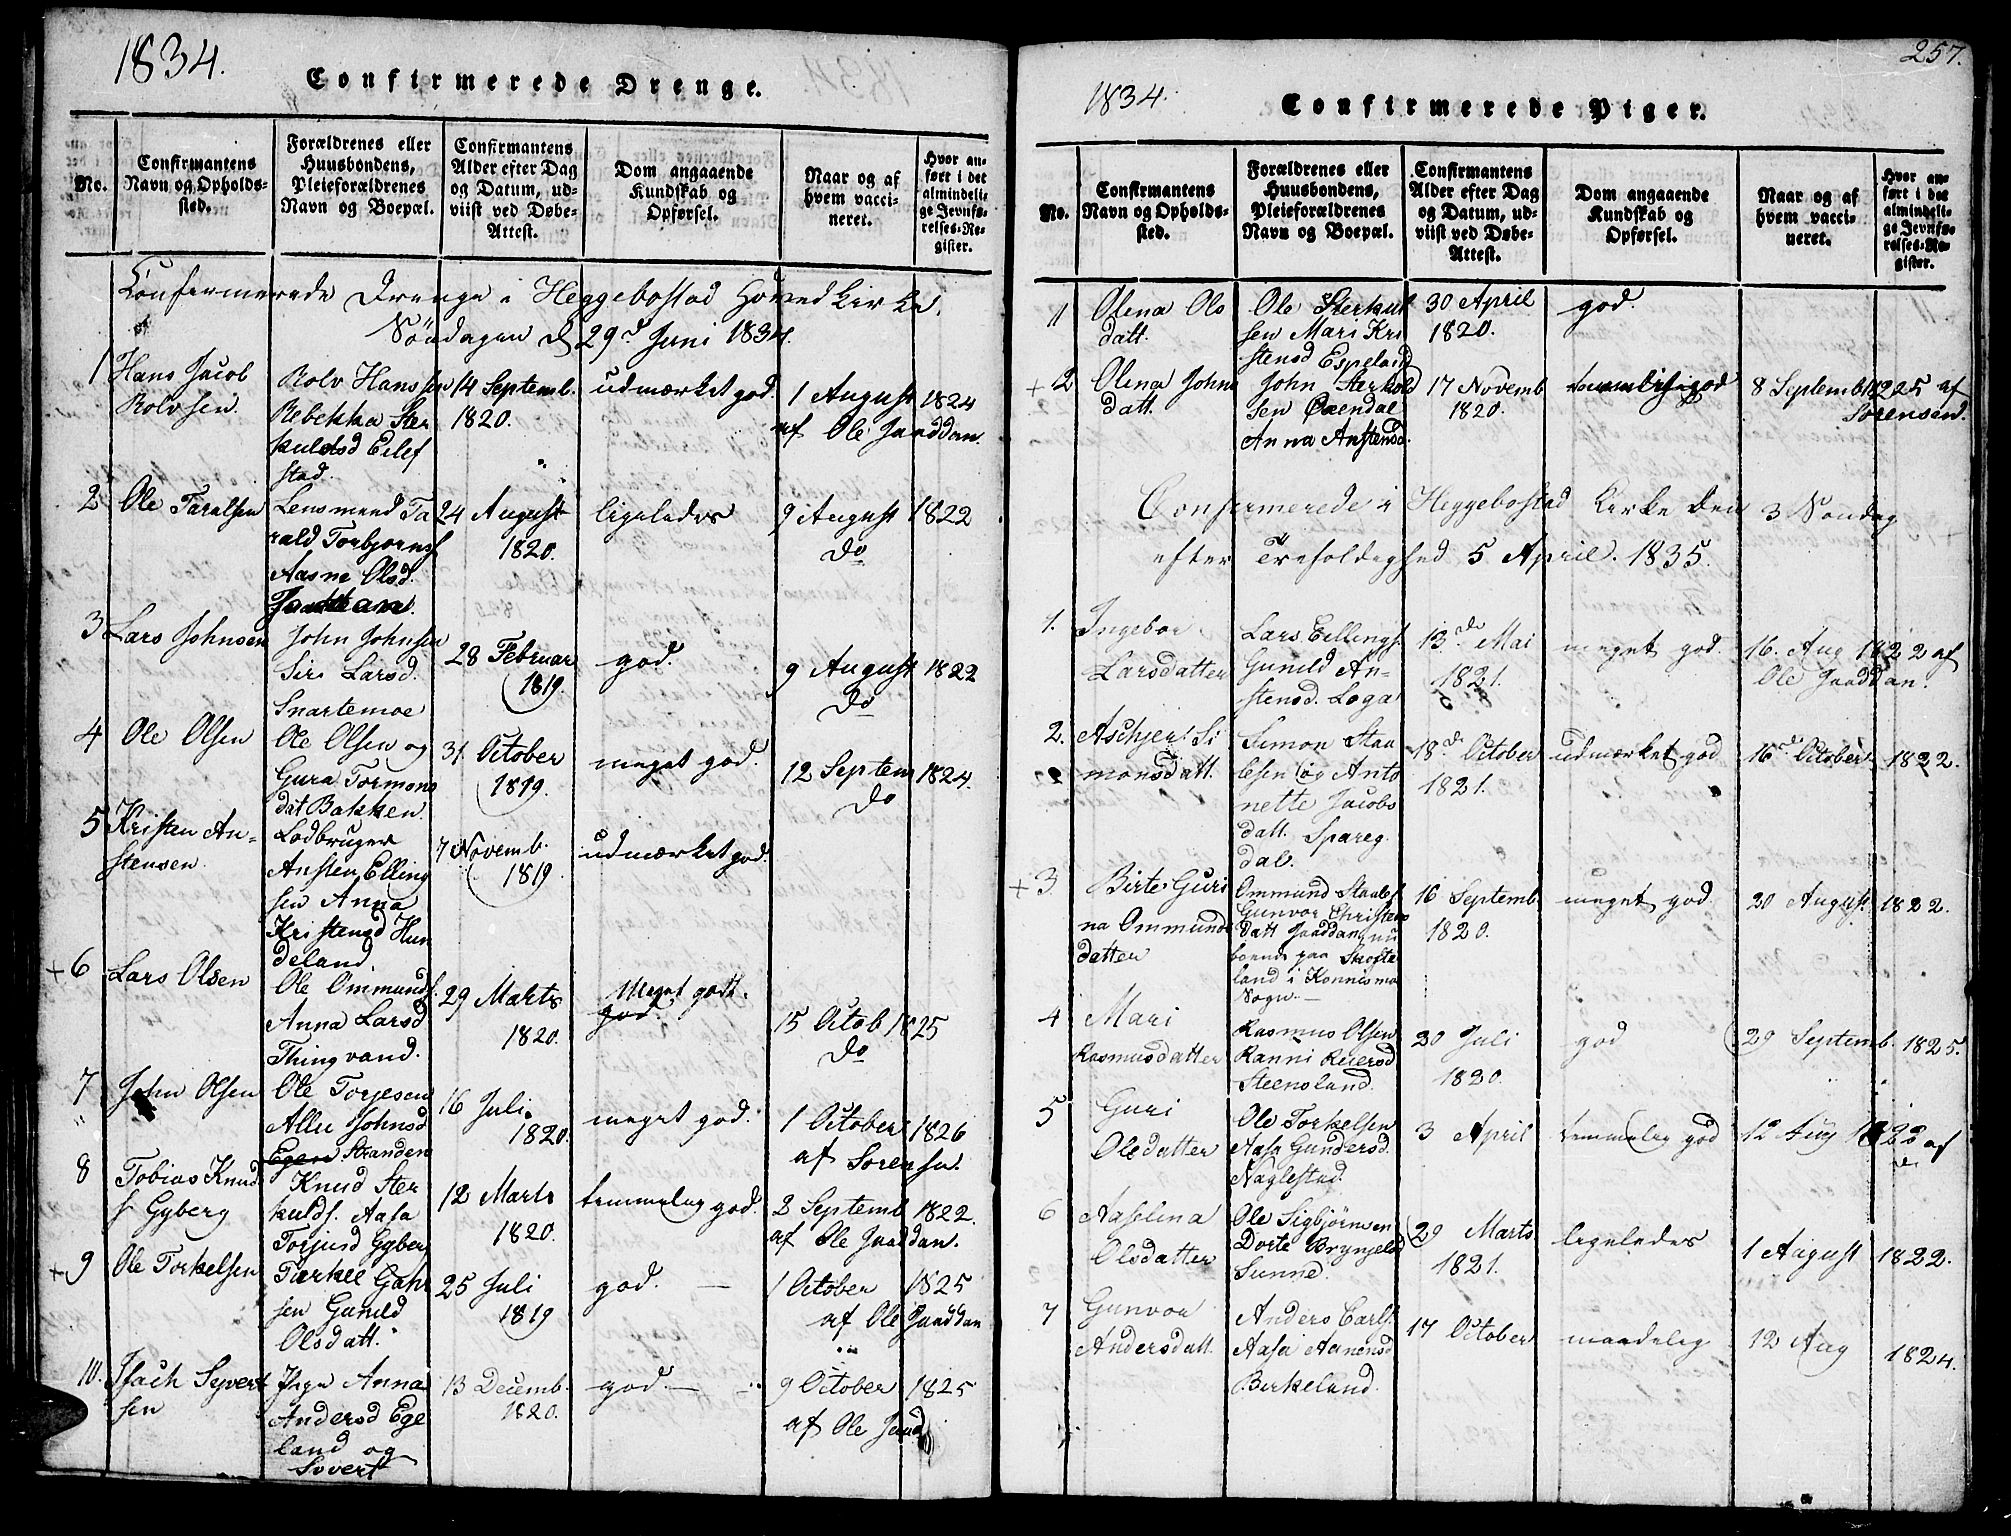 1834.
Confirmerede Drenge.
No.
Confirmantens
Navn og Opholds-
sted.
Forældrenes eller
Huusbondens,
Pleieforældrenes
Navn og Boepæl.
Confirmantens
Alder efter Dag
og Datum, ud-
viist ved Døbe-
Attest.
Dom angaaende
Kundskab og
Opførsel.
Naar og af
hvem vacci-
neret.
Hvor an-
ført i det
almindeli-
ge Jevnfø-
relses-Re-
gister.
Confermerede Drenge i Heggebostad Hovedkirke.
Söndagen d 29d Juni 1834.
1
Hans Jacob
Rolvsen
Rolv Hanssen
Rebekka Ster
kuldsd Eilef
stad.
14 Septemb.
1820.
udmærket god.
1 August 1824
af Ole Jaaddan.
2
Ole Taralsen
Lensmand Ta
rald Torbjorns
Aasne Olsd.
Jaaddan.
24 August
1820.
ligeledes
9 August 1822
do
3
Lars Johnsen
John Johnsen
Siri Larsd.
Snartemoe
28 Februar
1819.
god.
9 August 1822
do
4
Ole Olsen
Ole Olsen og
Gura Tormons
dat Bakken.
31 October
1819.
meget god.
12 Septem 1824.
do
5
Kristen An-
stensen.
Lodbruger
Ansten Elling
sen Anna
Kristensd Hun
deland.
7 Novemb.
1819.
udmærket god.
+ 6
Lars Olsen
Ole Ommunds.
Anna Larsd
Thingvand.
29 Marts
1820.
Meget godt.
god
15 Octob 1825
do
7
John Olsen
Ole Torjesen
Allu Johnsd
Egen Stranden
16 Juli
1820.
meget god.
1 October 1826
af Sorensen.
8
Tobias Knud
s Gyberg
Knud Ster
kulds. Aasa
Torjusd Gyber
12 Marts
1820.
temmelig god.
2 Septemb 1822.
af Ole Jaaddan.
+ 9
Ole Torkelsen
Tarkel Gahr
sen Gunild
Olsdatt.
25 Juli
1819
god.
1 October 1825
af Ole Jaaddan
10.
Isach Syvert
sen
Inga Anna
Andersd Ege
land og
Sivert
13 Decemb.
1820.
god.
9 October 1825
af Ole Jaad
257.
1834.
Confirmerede Piger.
No.
Confirmantens
Navn og Opholds-
sted.
Forældrenes eller
Huusbondens,
Pleieforældrenes
Navn og Boepæl.
Confirmantens
Alder efter Dag
og Datum, ud-
viist ved Døbe-
Attest.
Dom angaaende
Kundskab og
Opførsel.
Naar og af
hvem vacci-
neret.
Hvor an-
ført i det
almindeli-
ge Jevnfø-
relses-Re-
gister.
11
Olena Ols
datt.
Ole Sterkul
sen Mari Kri
stensd Espeland
30 April
1820.
god.
+ 2
Olena Johns
datt.
John Sterkold
sen
Anna Anstensd.
17 Novemb
1820.
temmelig god
8 Septemb 1825 af
Sorensen.
Confirmerede i Heggebostad Kirke den 3 Sondag
efter Trefoldighed 5 April. 1835.
1.
Ingebor
Larsdatter
Lars Ellings.
Gunild An-
stensd. Loga
13de Mai
1821.
meget god.
16. Aug 1822 af
Ole Jaaddan.
2.
Aschjer Si
monsdatt.
Simon Staa
lesen og Anto
nette Jacobs
datt. Spareg
dal.
18de October
1821.
udmærket god
16de October 1822.
+ 3
Birte Guri
na Ommunds
datter
Ommund Staales.
Gunvor Christens
datt Jaaddan nu
boende paa
land i Konnisma
Sogn.
16 Septemb
1820.
meget god.
20 August 1822.
4
Mari
Rasmusdatter
Rasmus Olsen
Ranni Reiersd
Steensland.
30 Juli
1820.
god
29 Septemb. 1825.
5
Guri
Olsdatter
Ole Torkelsen
Aasa Gundersd.
Naglestad.
3 April
temmelig god
12 Aug 1822 af
do
6
Aaselina
Olsdatter
Ole Sigbjörnsen
Dorte Brynjelsd
Sunne.
29 Marts
1821.
ligeledes
1 August 1822.
7
Gunvor
Andersdatt.
Anders Carls.
Aasa Aanensd
Birkeland.
17 October
maadelig
12 Aug 1824.